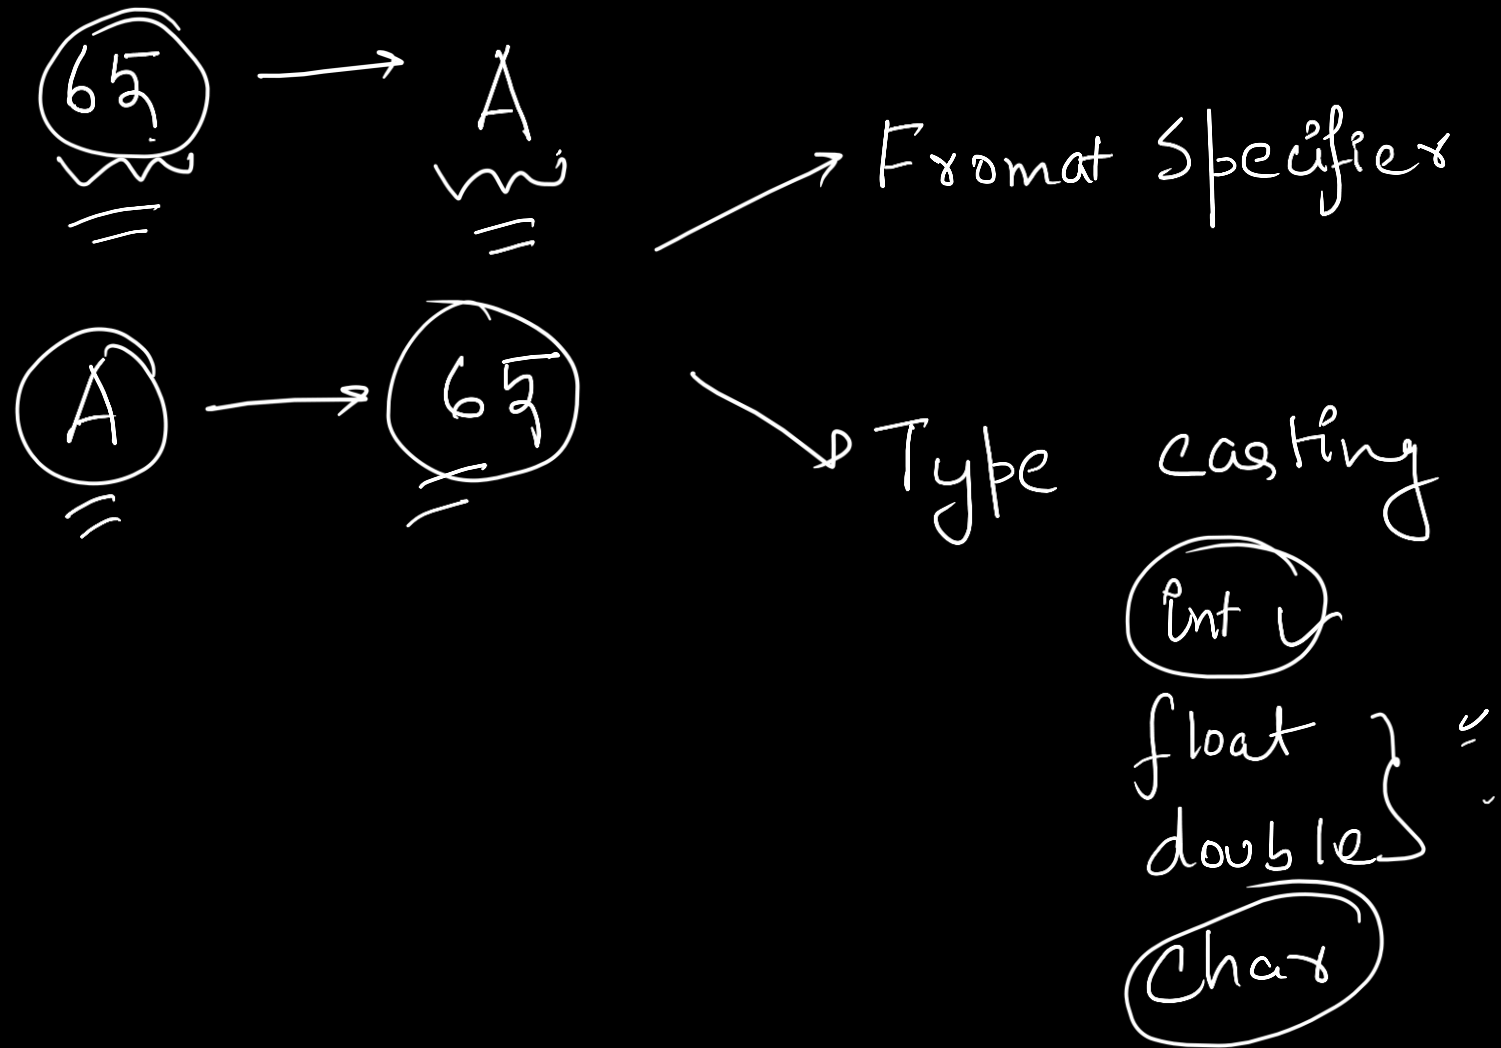 65 → A
Fromat Specifier
A → 65
Type casting
int
float
double
char